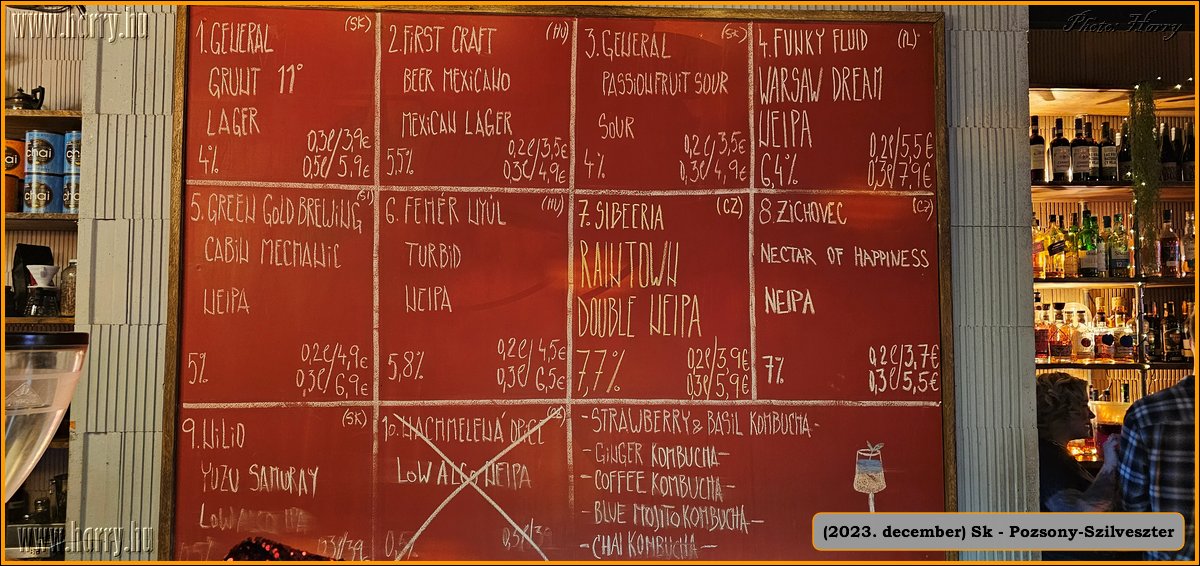 www.horry.hu
Photo: Horry
1. GENERAL (SK)
GRUNT 11°
LAGER
4% 0,3l/3,9€
0,5l/5,9€
2. FIRST CRAFT (HU)
BEER MEXICANO
MEXICAN LAGER
5,5% 0,2l/3,5€
0,3l/4,9€
3. GENERAL (SK)
PASSIONFRUIT SOUR
SOUR
4% 0,2l/3,5€
0,3l/4,9€
4. FUNKY FLUID (PL)
WARSAW DREAM
NEIPA
6,4% 0,2l/5,5€
0,3l/7,9€
chai
chai
chai
5. GREEN GOLD BREWING (SI)
CABIN MECHANIC
NEIPA
5% 0,2l/4,9€
0,3l/6,9€
6. FEHÉR NYÚL (HU)
TURBID
NEIPA
5,8% 0,2l/4,5€
0,3l/6,5€
7. SIBEERIA (CZ)
RAINTOWN
DOUBLE NEIPA
7,7% 0,2l/3,9€
0,3l/5,9€
8. ZICHOVEC (CZ)
NECTAR OF HAPPINESS
NEIPA
7% 0,2l/3,7€
0,3l/5,5€
9. NILIO (SK)
YUZU SAMURAY
LOW ALCO IPA
10. NACHMELENÁ OPICE
LOW ALCO NEIPA
0,5%
-STRAWBERRY & BASIL KOMBUCHA-
-GINGER KOMBUCHA-
-COFFEE KOMBUCHA-
-BLUE MOJITO KOMBUCHA-
-CHAI KOMBUCHA-
www.horry.hu
(2023. december) Sk - Pozsony-Szilveszter